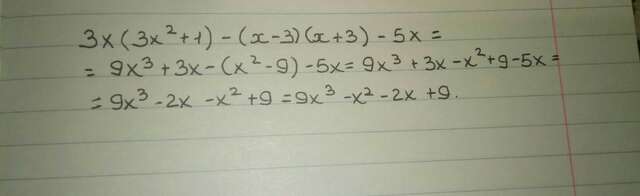 3x(3x²+1)-(x-3)(x+3)-5x=
=9x³+3x-(x²-9)-5x=9x³+3x-x²+9-5x=
=9x³-2x-x²+9=9x³-x²-2x+9.